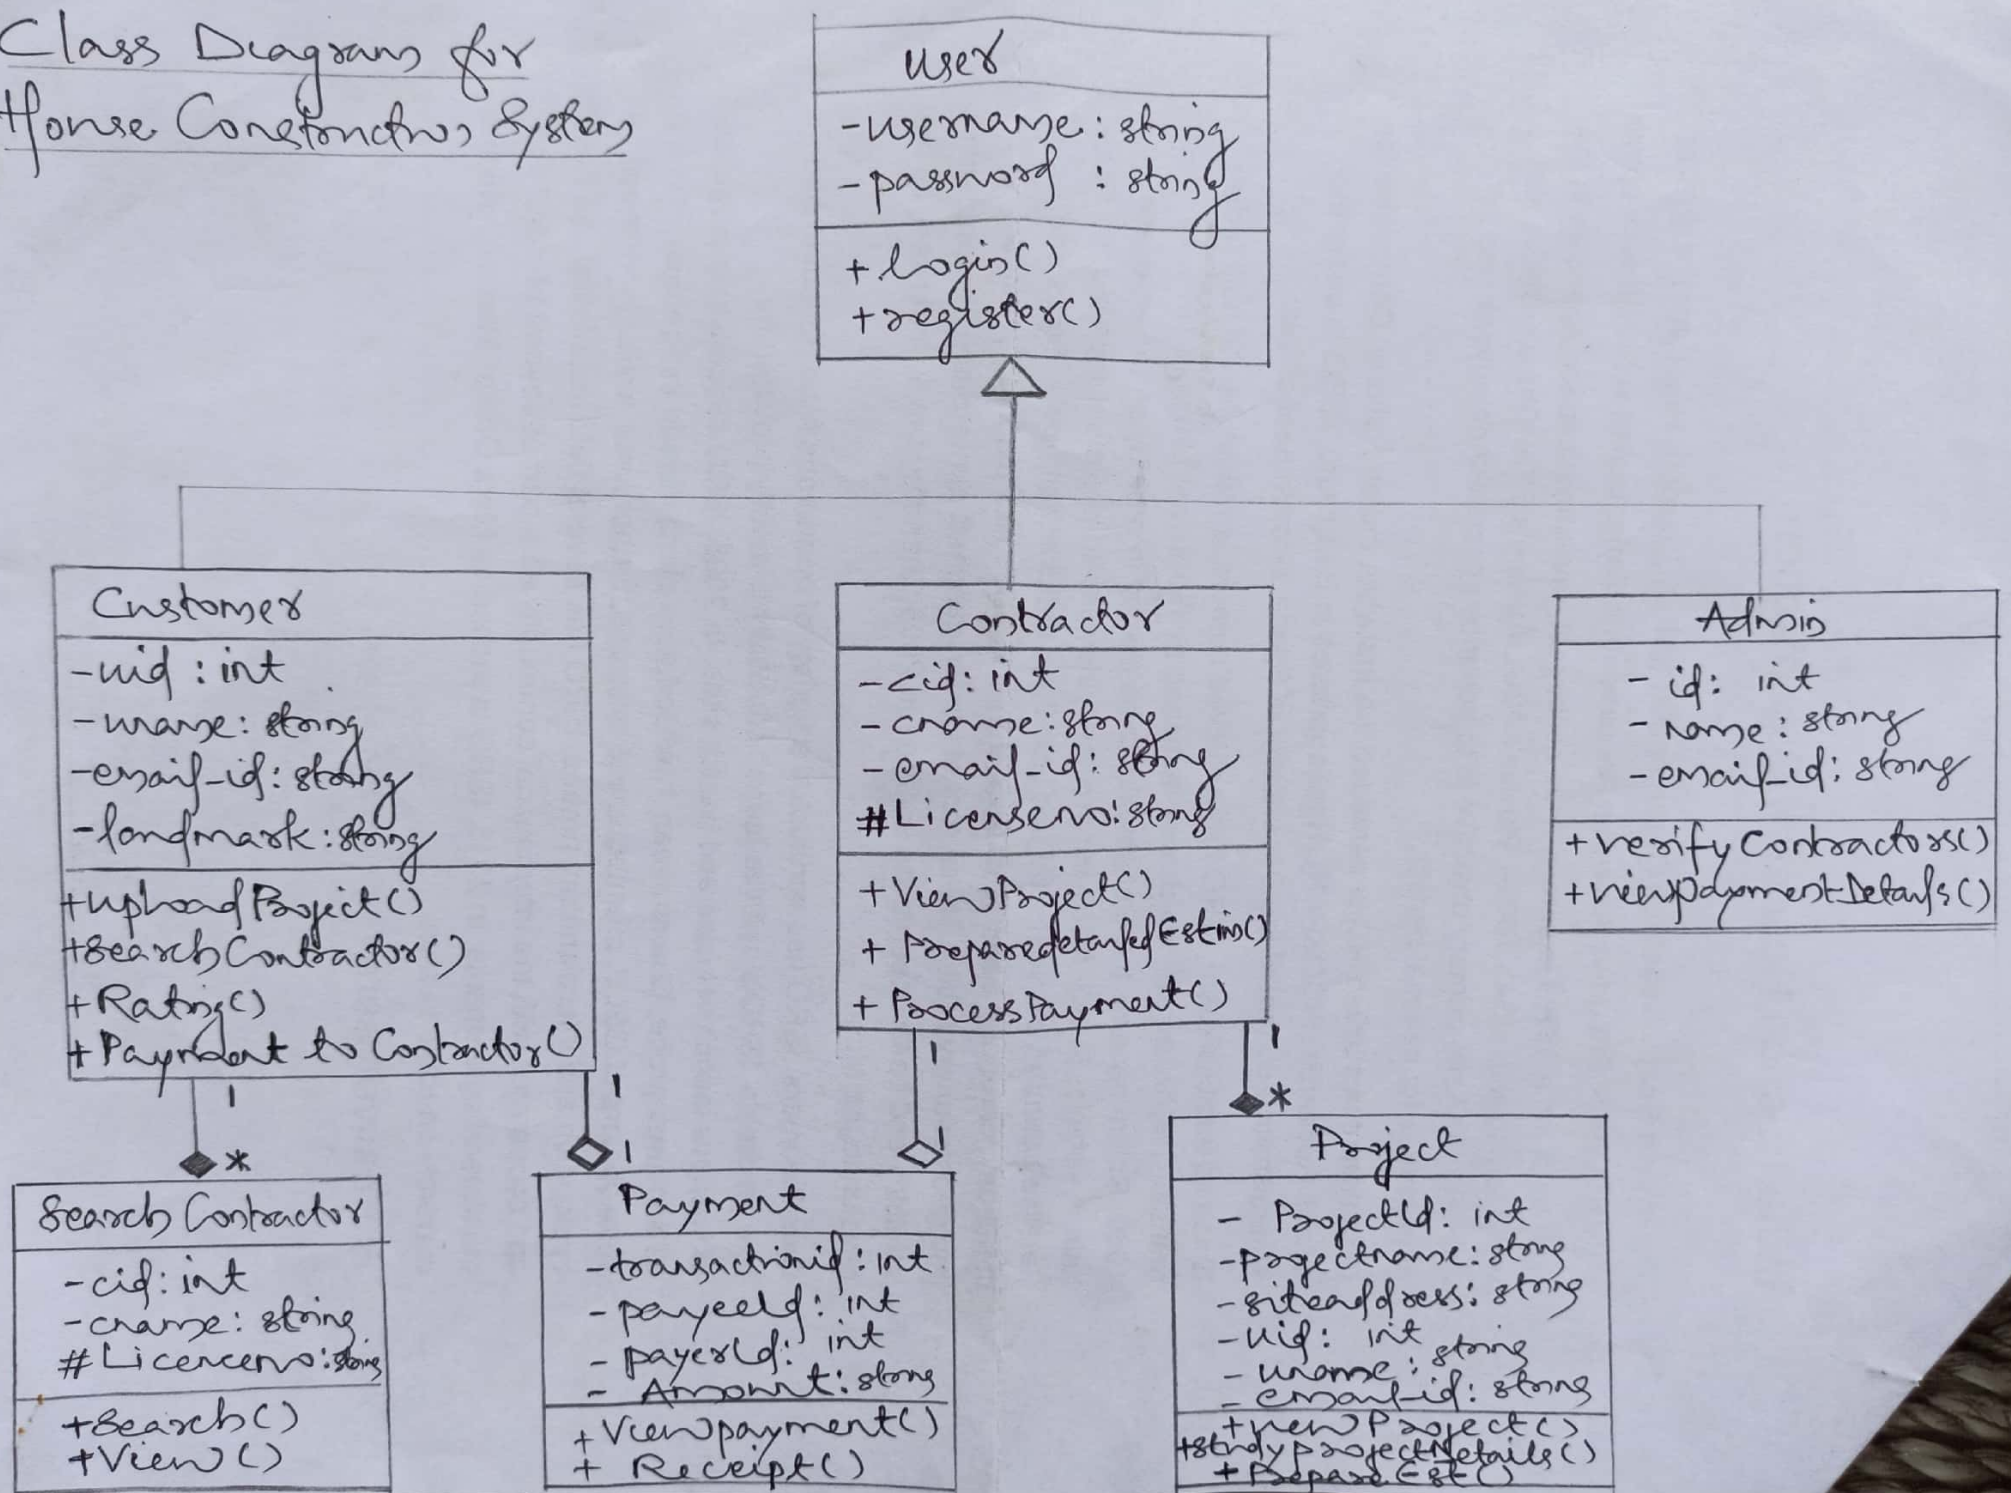 Class Diagram for
House Construction System
User
-username: string
-password : string
+Login()
+register()
Customer
-uid : int
-uname: string
-email-id: string
-landmark: string
+upload Project()
+Search Contractor()
+Rating()
+Payment to Contractor()
1
*
1
1
Contractor
-cid: int
-cname: string
-email-id: string
#Licenseno: string
+View Project()
+ PreparedetailedEstim()
+ Process Payment()
1
1
1
*
Admin
- id: int
- name: string
- email-id: string
+verify Contractors()
+viewpaymentDetails()
Search Contractor
-cid: int
-cname: string
#Licenceno: string
+Search()
+View()
Payment
-transactionid: int
-payeeId: int
- payerId: int
- Amount: string
+Viewpayment()
+ Receipt()
Project
- ProjectId: int
-projectname: string
-siteaddress: string
-uid: int
-uname: string
-email-id: string
+view Project()
+studyprojectDetails()
+Prepare Est()